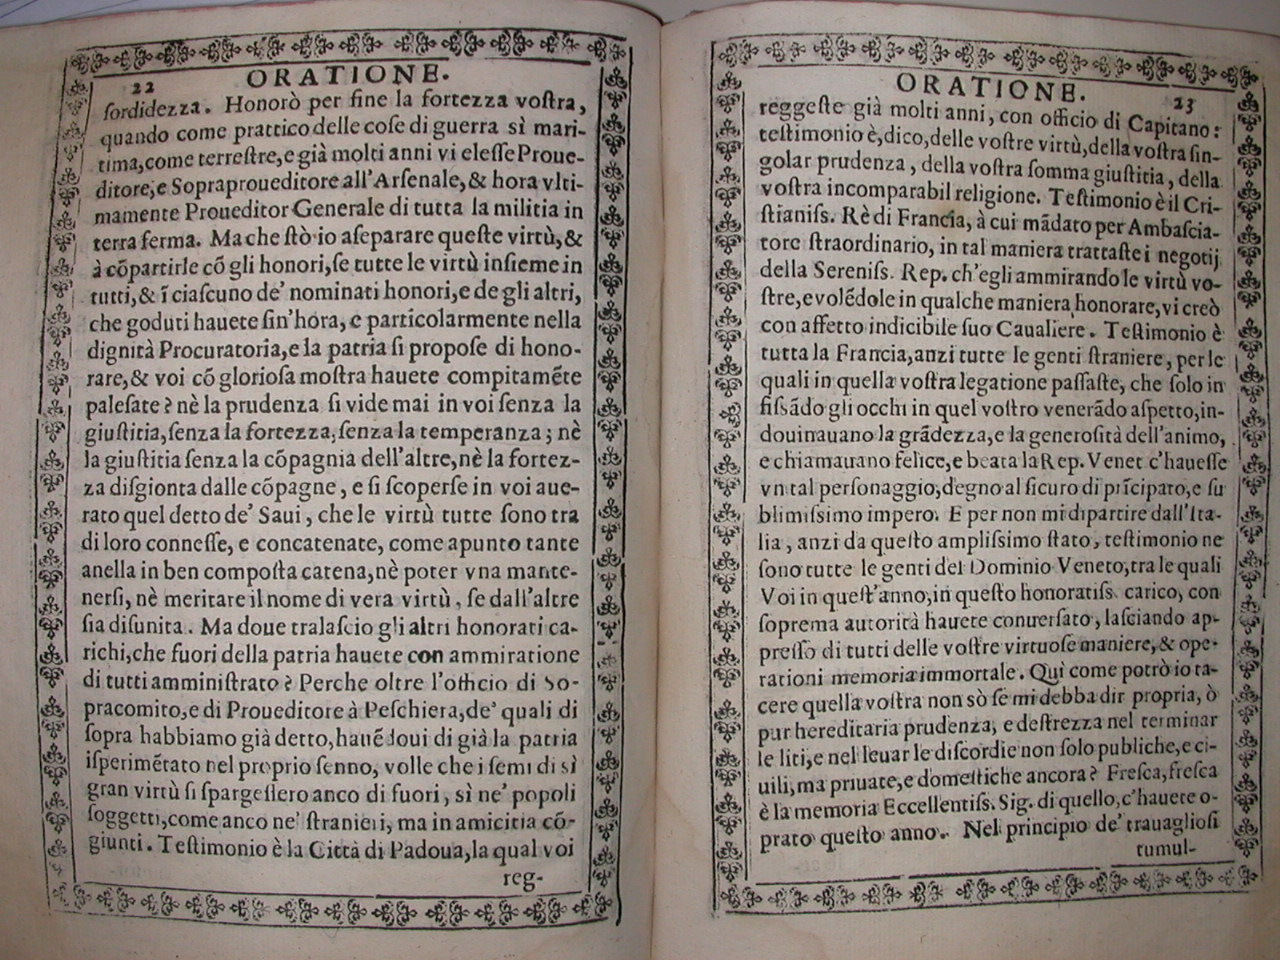 22
ORATIONE.
ſordidezza. Honorò per fine la fortezza voſtra,
quando come prattico delle coſe di guerra sì mari-
tima, come terreſtre, e già molti anni vi eleſſe Proue-
ditore, e Sopraproueditore all'Arſenale, & hora vlti-
mamente Proueditor Generale di tutta la militia in
terra ferma. Ma che ſtò io aſeparare queſte virtù, &
à cõpartirle cõ gli honori, ſe tutte le virtù inſieme in
tutti, & ĩ ciaſcuno de' nominati honori, e de gli altri,
che goduti hauete ſin'hora, e particolarmente nella
dignità Procuratoria, e la patria ſi propoſe di hono-
rare, & voi cõ glorioſa moſtra hauete compitamẽte
paleſate? nè la prudenza ſi vide mai in voi ſenza la
giuſtitia, ſenza la fortezza, ſenza la temperanza; nè
la giuſtitia ſenza la cõpagnia dell'altre, nè la fortez-
za diſgionta dalle cõpagne, e ſi ſcoperſe in voi aue-
rato quel detto de' Saui, che le virtù tutte ſono tra
di loro conneſſe, e concatenate, come apunto tante
anella in ben compoſta catena, nè poter vna mante-
nerſi, nè meritare il nome di vera virtù, ſe dall'altre
ſia diſunita. Ma doue tralaſcio gli altri honorati ca-
richi, che fuori della patria hauete con ammiratione
di tutti amminiſtrato? Perche oltre l'officio di So-
pracomito, e di Proueditore à Peſchiera, de' quali di
ſopra habbiamo già detto, hauẽdoui di già la patria
iſperimẽtato nel proprio ſenno, volle che i ſemi di sì
gran virtù ſi ſpargeſſero anco di fuori, sì ne' popoli
ſoggetti, come anco ne' ſtranieri, ma in amicitia cõ-
giunti. Teſtimonio è la Città di Padoua, la qual voi
reg-
ORATIONE.
23
reggeſte già molti anni, con officio di Capitano:
teſtimonio è, dico, delle voſtre virtù, della voſtra ſin-
golar prudenza, della voſtra ſomma giuſtitia, della
voſtra incomparabil religione. Teſtimonio è il Cri-
ſtianiſs. Rè di Francia, à cui mãdato per Ambaſcia-
tore ſtraordinario, in tal maniera trattaſte i negotij
della Sereniſs. Rep. ch'egli ammirando le virtù vo-
ſtre, e volẽdole in qualche maniera honorare, vi creò
con affetto indicibile ſuo Caualiere. Teſtimonio è
tutta la Francia, anzi tutte le genti ſtraniere, per le
quali in quella voſtra legatione paſſaſte, che ſolo in
fiſsãdo gli occhi in quel voſtro venerãdo aſpetto, in-
douinauano la grãdezza, e la generoſità dell'animo,
e chiamauano felice, e beata la Rep. Venet c'haueſſe
vn tal perſonaggio, degno al ſicuro di prĩcipato, e ſu
blimiſsimo impero. E per non mi dipartire dall'Ita-
lia, anzi da queſto ampliſsimo ſtato, teſtimonio ne
ſono tutte le genti del Dominio Veneto, tra le quali
Voi in queſt'anno, in queſto honoratiſs. carico, con
ſoprema autorità hauete conuerſato, laſciando ap-
preſſo di tutti delle voſtre virtuoſe maniere, & ope-
rationi memoria immortale. Qui come potrò io ta-
cere quella voſtra non sò ſe mi debba dir propria, ò
pur hereditaria prudenza, e deſtrezza nel terminar
le liti, e nel leuar le diſcordie non ſolo publiche, e ci-
uili, ma priuate, e domeſtiche ancora? Freſca, freſca
è la memoria Eccellentiſs. Sig. di quello, c'hauete o-
prato queſto anno. Nel principio de' trauaglioſi
tumul-